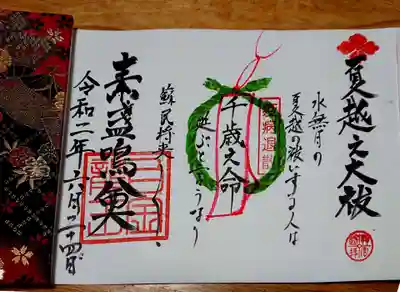 夏越之大祓
水無月の
夏越の祓いする人は
千歳之命
延ぶと云うなり
蘇民将来
素盞嗚尊
令和二年六月二十四日